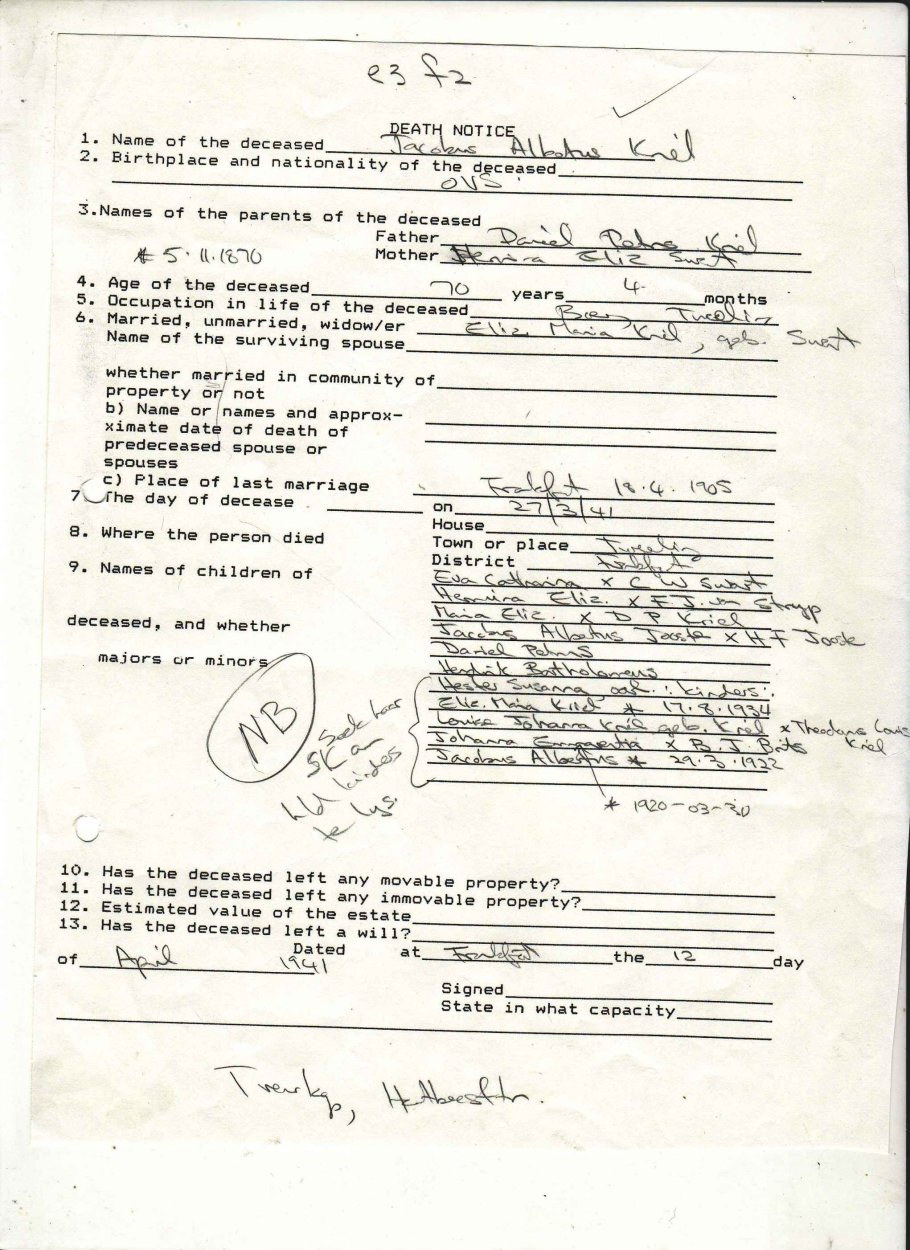 e3 f2
DEATH NOTICE
1. Name of the deceased Jacobus Albertus Kriel
2. Birthplace and nationality of the deceased
OVS
3.Names of the parents of the deceased
Father Daniel Petrus Kriel
* 5.11.1870 Mother Hermina Eliz Swart
4. Age of the deceased 70 years 4 months
5. Occupation in life of the deceased Boer,
6. Married, unmarried, widow/er Eliz. Maria Kriel, geb. Swart
Name of the surviving spouse
whether married in community of
property or not
b) Name or names and approx-
ximate date of death of
predeceased spouse or
spouses
c) Place of last marriage Frankfort 18.4.1905
7. The day of decease on 27/3/41
House
8. Where the person died Town or place
District Frankfort
9. Names of children of Eva Catharina x C W Swart
Hermina Eliz. x F J. van Stryp
Maria Eliz. x D P Kriel
deceased, and whether Jacobus Albertus Jooste x H F Jooste
Daniel Petrus
majors or minors Hendrik Bartholomeus
Hester Susanna, oorl. : kinders :
Eliz. Maria Kriel * 17.8.1934
Louisa Johanna Kriel geb. Kriel x Theodorus Louis Kriel
Johanna x B. J. Brits
Jacobus Albertus * 29.3.1922
* 1920-03-30
NB
Soek haar
SK om
kinders
te kry.
10. Has the deceased left any movable property?
11. Has the deceased left any immovable property?
12. Estimated value of the estate
13. Has the deceased left a will?
Dated at Frankfort the 12 day
of April 1941
Signed
State in what capacity